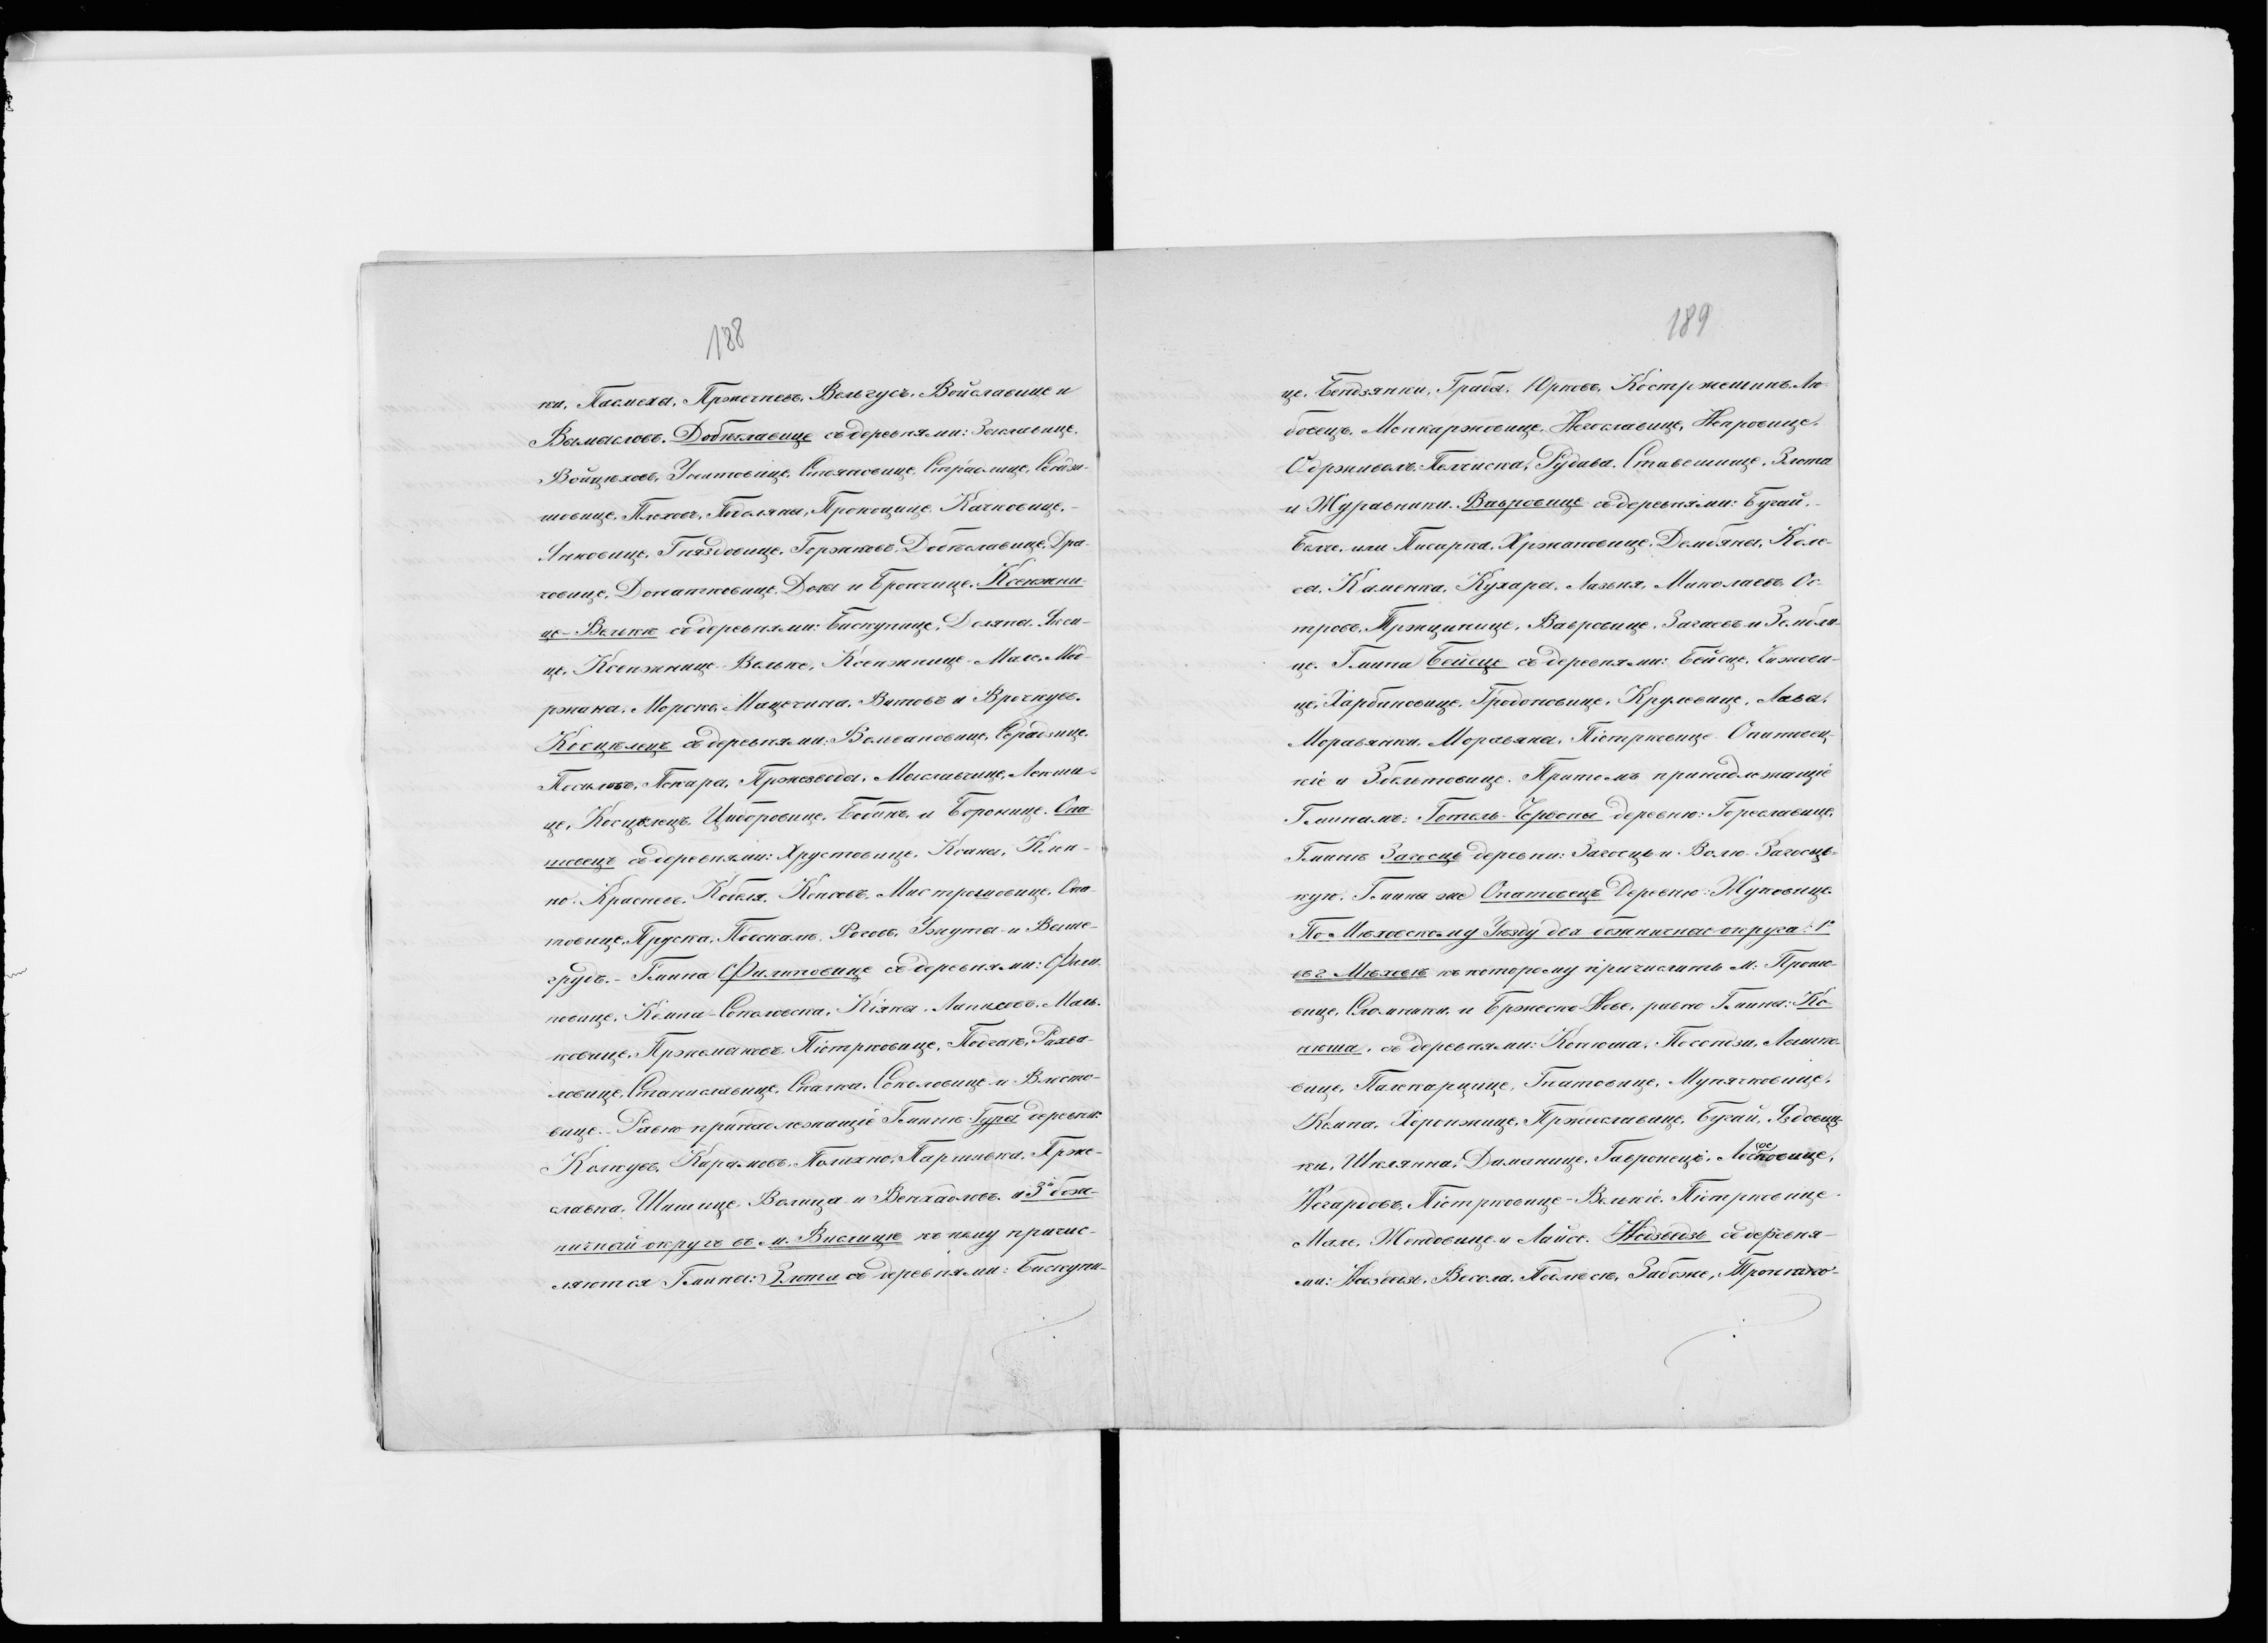 188
ки, Пасмехы, Пржечневъ, Вельгусъ, Войславице и
Вымысловъ. Добѣславице съ деревнями: Зыславице,
Войцѣховъ, Ушитовице, Стояновице, Страдлице, Сендзи-
шовице, Плеховъ, Подоляны, Прокоцице, Качковице,
Янковице, Гняздовице, Горжковъ, Добѣславице, Дра-
човице, Донатковице, Долы и Брончице. Ксенжни-
це-Вельке съ деревнями: Бискупице, Доляны, Яси-
це, Ксенжнице-Вельке, Ксенжнице-Мале, Мод-
ржана, Морско, Мацечина, Витовъ и Врочкувъ.
Косцѣлецъ съ деревнями: Волвановице, Серадзице,
Посиловъ, Пекара, Пржезводы, Мыславчице, Лекши-
це, Косцѣлецъ, Циборовице, Бобинъ и Боронице. Опа-
товецъ съ деревнями: Хрустовице, Ксаны, Клон-
но, Красневъ, Кобеля, Копсовъ, Мистржовице, Опа-
товице, Пруска, Поскалѣ, Роговъ, Ужуты и Выше-
градъ. Гмина Филиповице съ деревнями: Фили-
повице, Кемпа-Соколовска, Кіяны, Лаписовъ, Маль-
ковице, Пржемыковъ, Піотрковице, Подгае, Рахва-
ловице, Станиславице, Скалка, Соколовице и Влосто-
вице. Равно принадлежащіе Гминѣ Гуры деревни:
Колкувъ, Карамовъ, Полихно, Паршивка, Прже-
славка, Шишице, Волица и Венхадловъ. и 3й бож-
ничный округъ въ м. Вислицѣ къ нему причис-
ляются Гмины: Злота съ деревнями: Бискупи-
189
це, Бендзянки, Грабы, Юрковъ, Костржешинъ, Лю-
бовецъ, Мекаржовице, Негославице, Непровице,
Одрживолъ, Пелчиска, Рудава, Ставешице, Злота
и Журавники. Вавровице съ деревнями: Бугай,
Белче или Писарка, Хржановице, Дембяны, Коле-
са, Каменка, Кухары, Лазыя, Миколаевъ, Ос-
тровъ, Пржицинице, Вавровице, Загаевъ и Зембли-
це. Гмина Бейсце съ деревнями: Бейсце, Чижови-
це, Харбиновице, Гродоновице, Крулевице, Лава,
Моравянки, Моравяны, Піотрковице Опатовец-
кіе и Збельтовице. Притомъ принадлежащіе
Гминамъ: Готель-Червоны деревню: Гореславице,
Гминѣ Загосць деревни: Загосць и Волю-Загосць-
кую. Гмина же Опатовецъ деревню: Жуковице.
По Мѣховскому Уѣзду два божничные округа: 1й
въ г. Мѣховѣ къ которому причислить м: Прошо-
вице, Сломники и Бржеско-Нове, равно Гмины: Ко-
нюша, съ деревнями: Конюша, Посондзи, Лешко-
вице, Палекарцице, Гнатовице, Мунячковице,
Кемпа, Хоронжице, Пржеславице, Бугай, Яздовиц-
ки, Шклянна, Даманице, Гавронецъ, Лосовице,
Негардовъ, Піотрковице-Велькіе, Піотрковице-
Мале, Жендовице и Лайсе. Недзведзь съ деревня-
ми: Недзведзь, Весола, Полесѣ, Забоже,